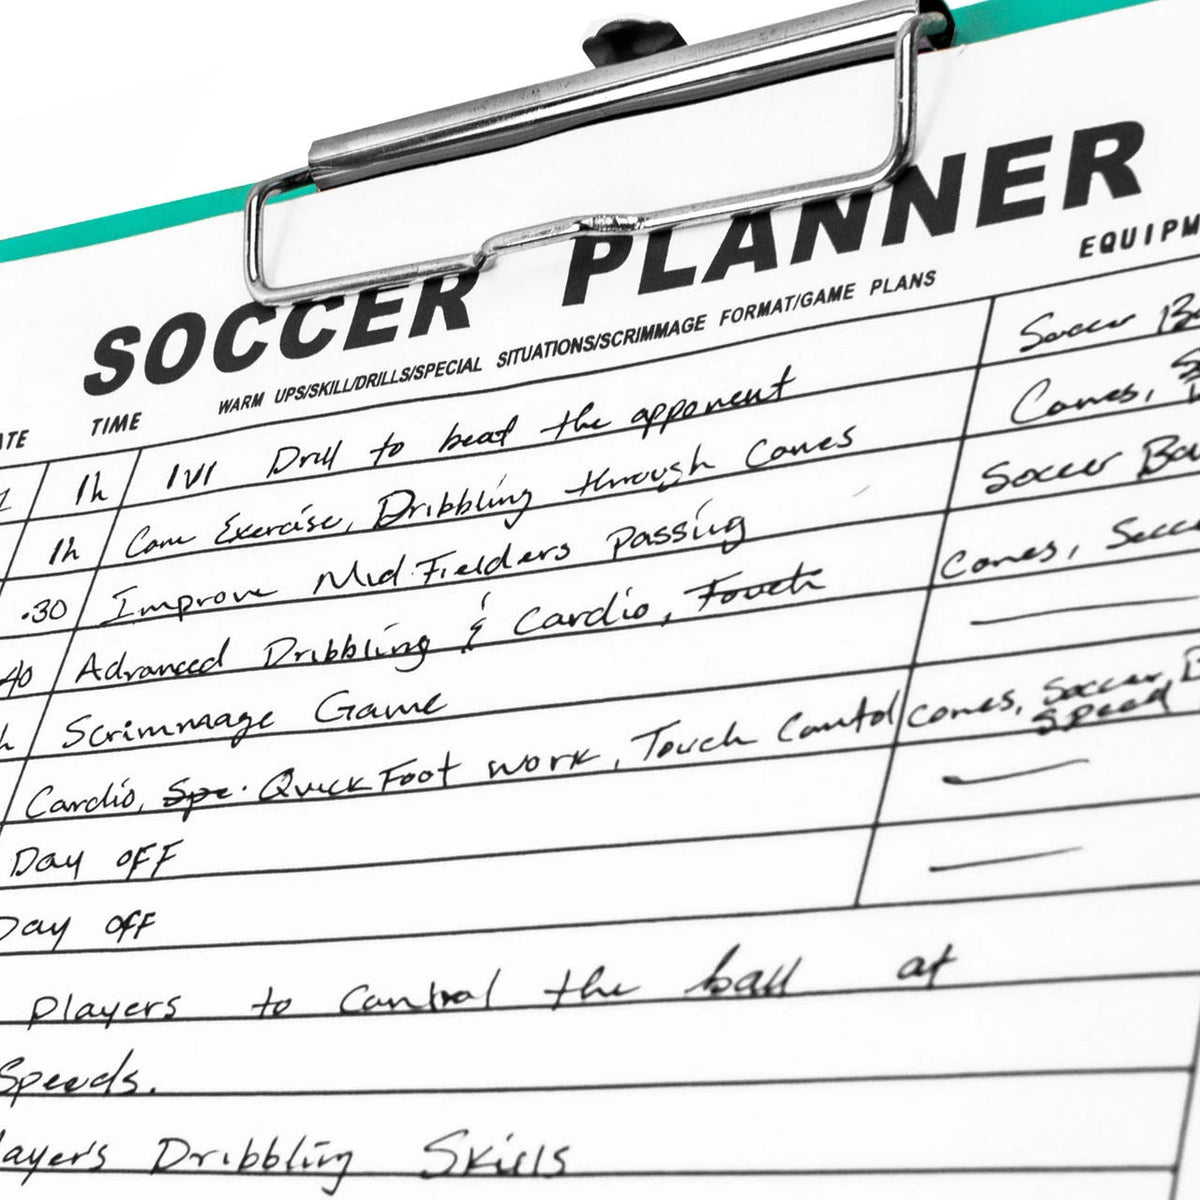 SOCCER PLANNER
TIME WARM UPS/SKILL/DRILLS/SPECIAL SITUATIONS/SCRIMMAGE FORMAT/GAME PLANS
1h 1V1 Drill to beat the opponent Soccer
1h Cone Exercise, Dribbling through Cones Cones,
.30 Improve Mid Fielders Passing Soccer
40 Advanced Dribbling & Cardio, Touch Cones,
Scrimmage Game —
Cardio, Spe. Quick Foot work, Touch Contol Cones, Soccer, Speed
Day off —
Day off —
Players to Control the ball at
Speeds.
Dribbling Skills